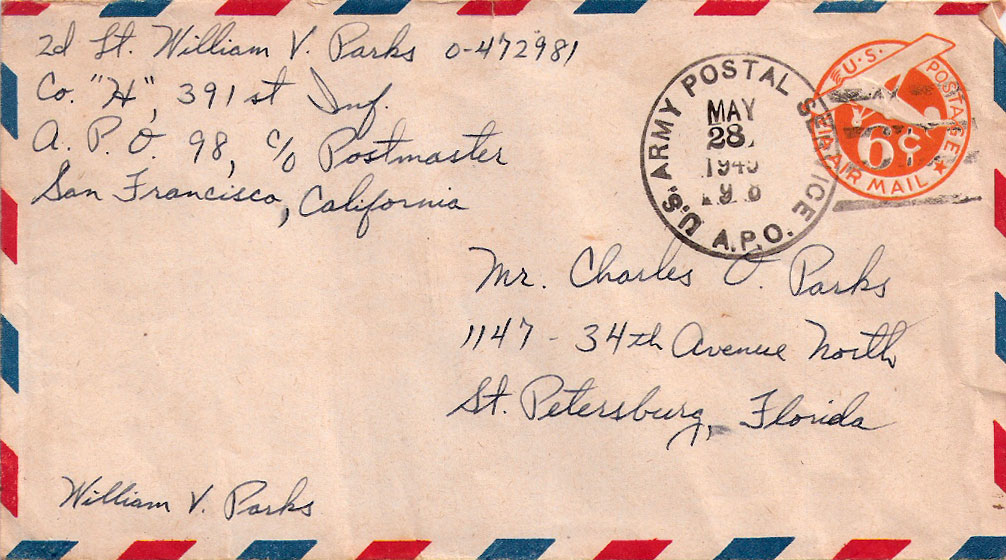 2d Lt. William V. Parks O-472981
Co. "H", 391st Inf.
A. P. O. 98, c/o Postmaster
San Francisco, California
U.S. ARMY POSTAL SERVICE
MAY
28
A.P.O.
U.S. POSTAGE
6¢
VIA AIR MAIL
Mr. Charles O. Parks
1147 - 34th Avenue North
St. Petersburg, Florida
William V. Parks